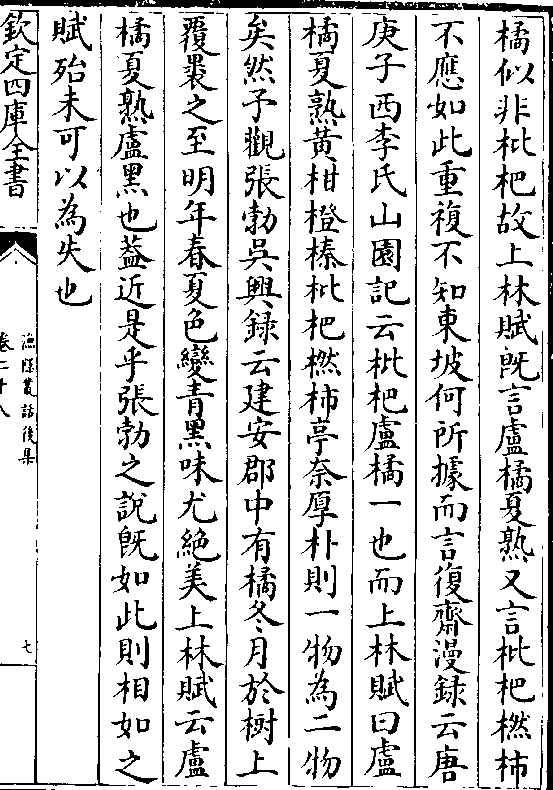 橘似非枇杷故上林賦既言盧橘夏熟又言枇杷橪柿
不應如此重複不知東坡何所據而言復齋漫録云唐
庚子西李氏山園記云枇杷盧橘一也而上林賦曰盧
橘夏熟黄柑橙楱枇杷橪柿亭奈厚朴則一物為二物
矣然予觀張勃吳興録云建安郡中有橘冬月於樹上
覆褁之至明年春夏色變青黑味尤絶美上林賦云盧
橘夏熟盧黑也葢近是乎張勃之說既如此則相如之
賦殆未可以為失也
欽定四庫全書
漁隱叢話後集
卷二十八
七